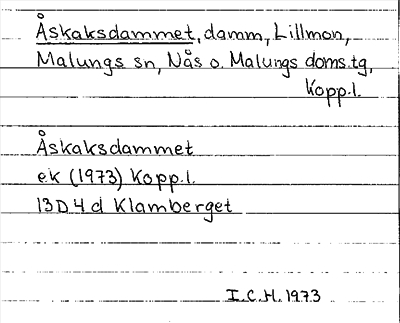 Åskaksdammet, damm, Lillmon,
Malungs sn, Nås o. Malungs doms.tg,
Kopp.l.
Åskaksdammet
ek (1973) Kopp.l.
13D4d Klamberget
I.C.H. 1973